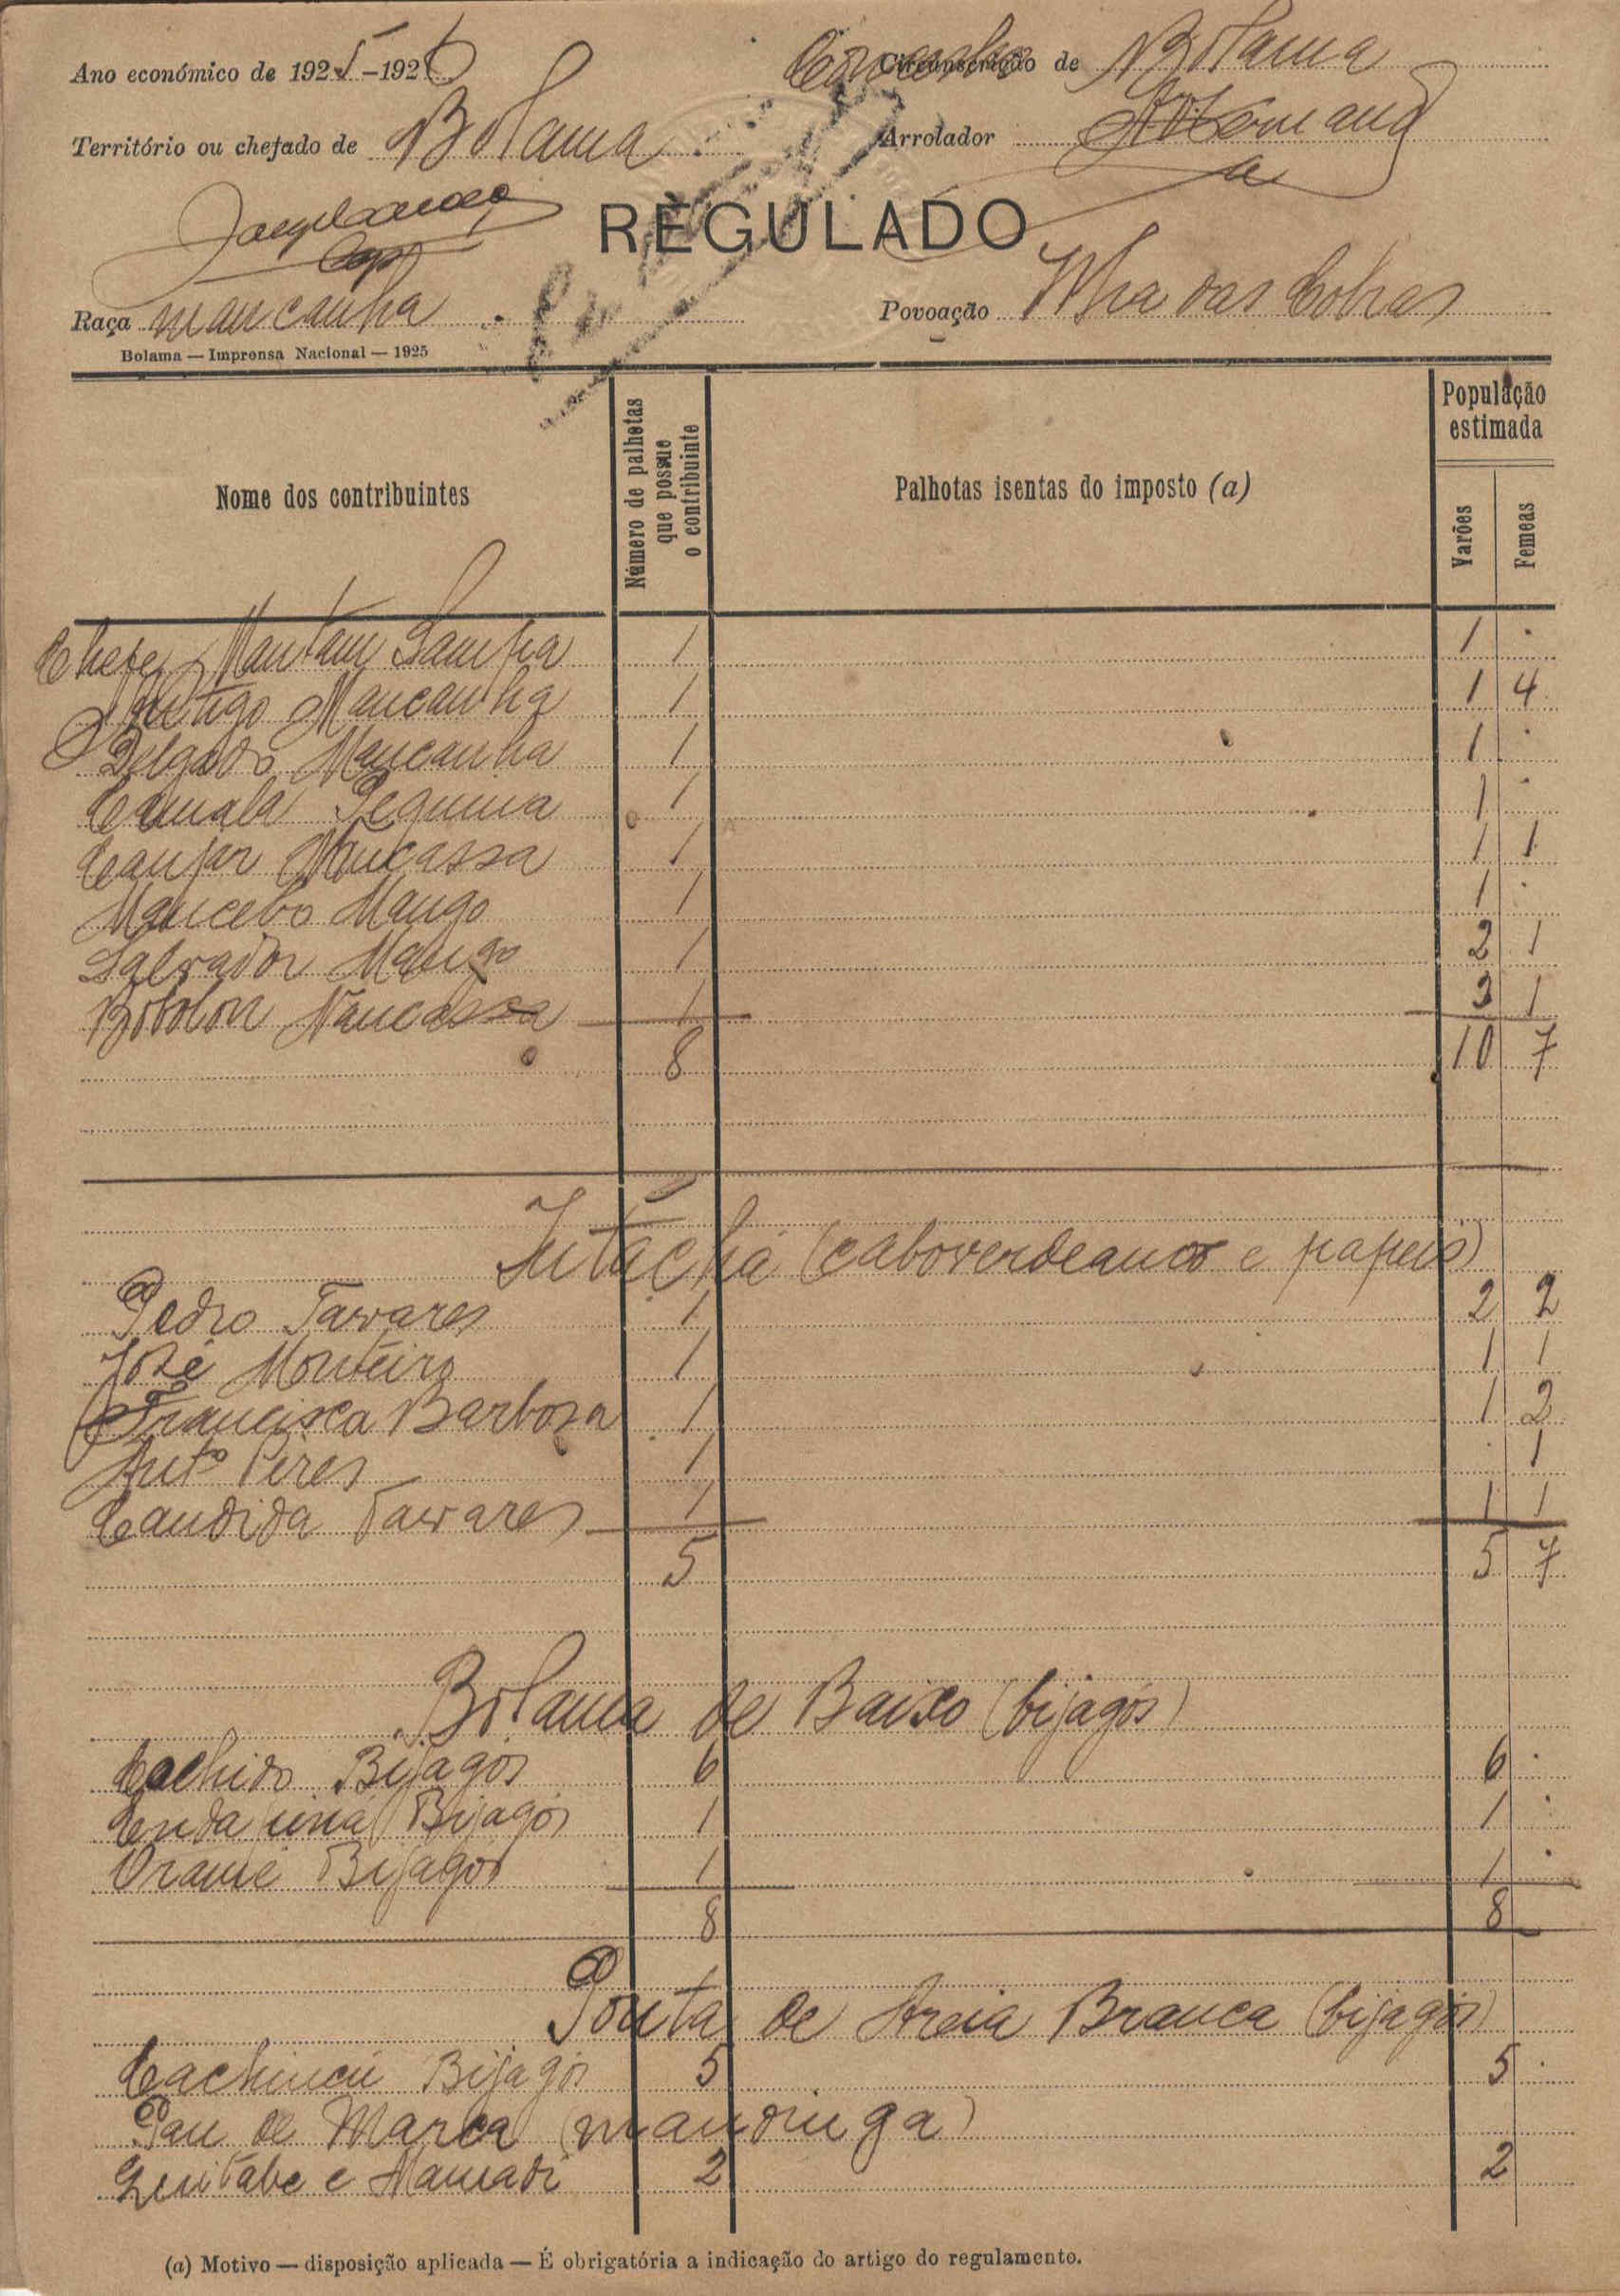 Ano económico de 1925-1926
Concelho de Bolama
Território ou chefado de Bolama
Arrolador
REGULADO
Raça mancanha
Povoação Ilha das Cobras
Bolama — Imprensa Nacional — 1925
Nome dos contribuintes
Número de palhotas que possue o contribuinte
Palhotas isentas do imposto (a)
População estimada
Varões
Femeas
Chefe, Mantam Sampa 1 1 .
Antigo Mancanha 1 1 4
Delgado Mancanha 1 1 .
Camala Pequina 1 1 .
Canjar Mucassa 1 1 1
Mancebo Mango 1 1 .
Salvador Mango 1 2 1
Bobolon Naucassa 1 3 1
8 10 7
Intachá (caboverdeanos e papeis)
Pedro Tavares 1 2 2
José Monteiro 1 1 1
Francisca Barbosa 1 1 2
Antº Pires 1 . 1
Candida Tavares 1 1 1
5 5 7
Bolama de Baixo (bijagós)
Cachido Bijagós 6 6 .
Bijagós 1 1 .
Oramé Bijagós 1 1 .
8 8
Ponta de Areia Branca (bijagós)
Cachincú Bijagós 5 5 .
Pau de Marca (mandinga)
Quitabe e Mamadi 2 2
(a) Motivo — disposição aplicada — É obrigatória a indicação do artigo do regulamento.